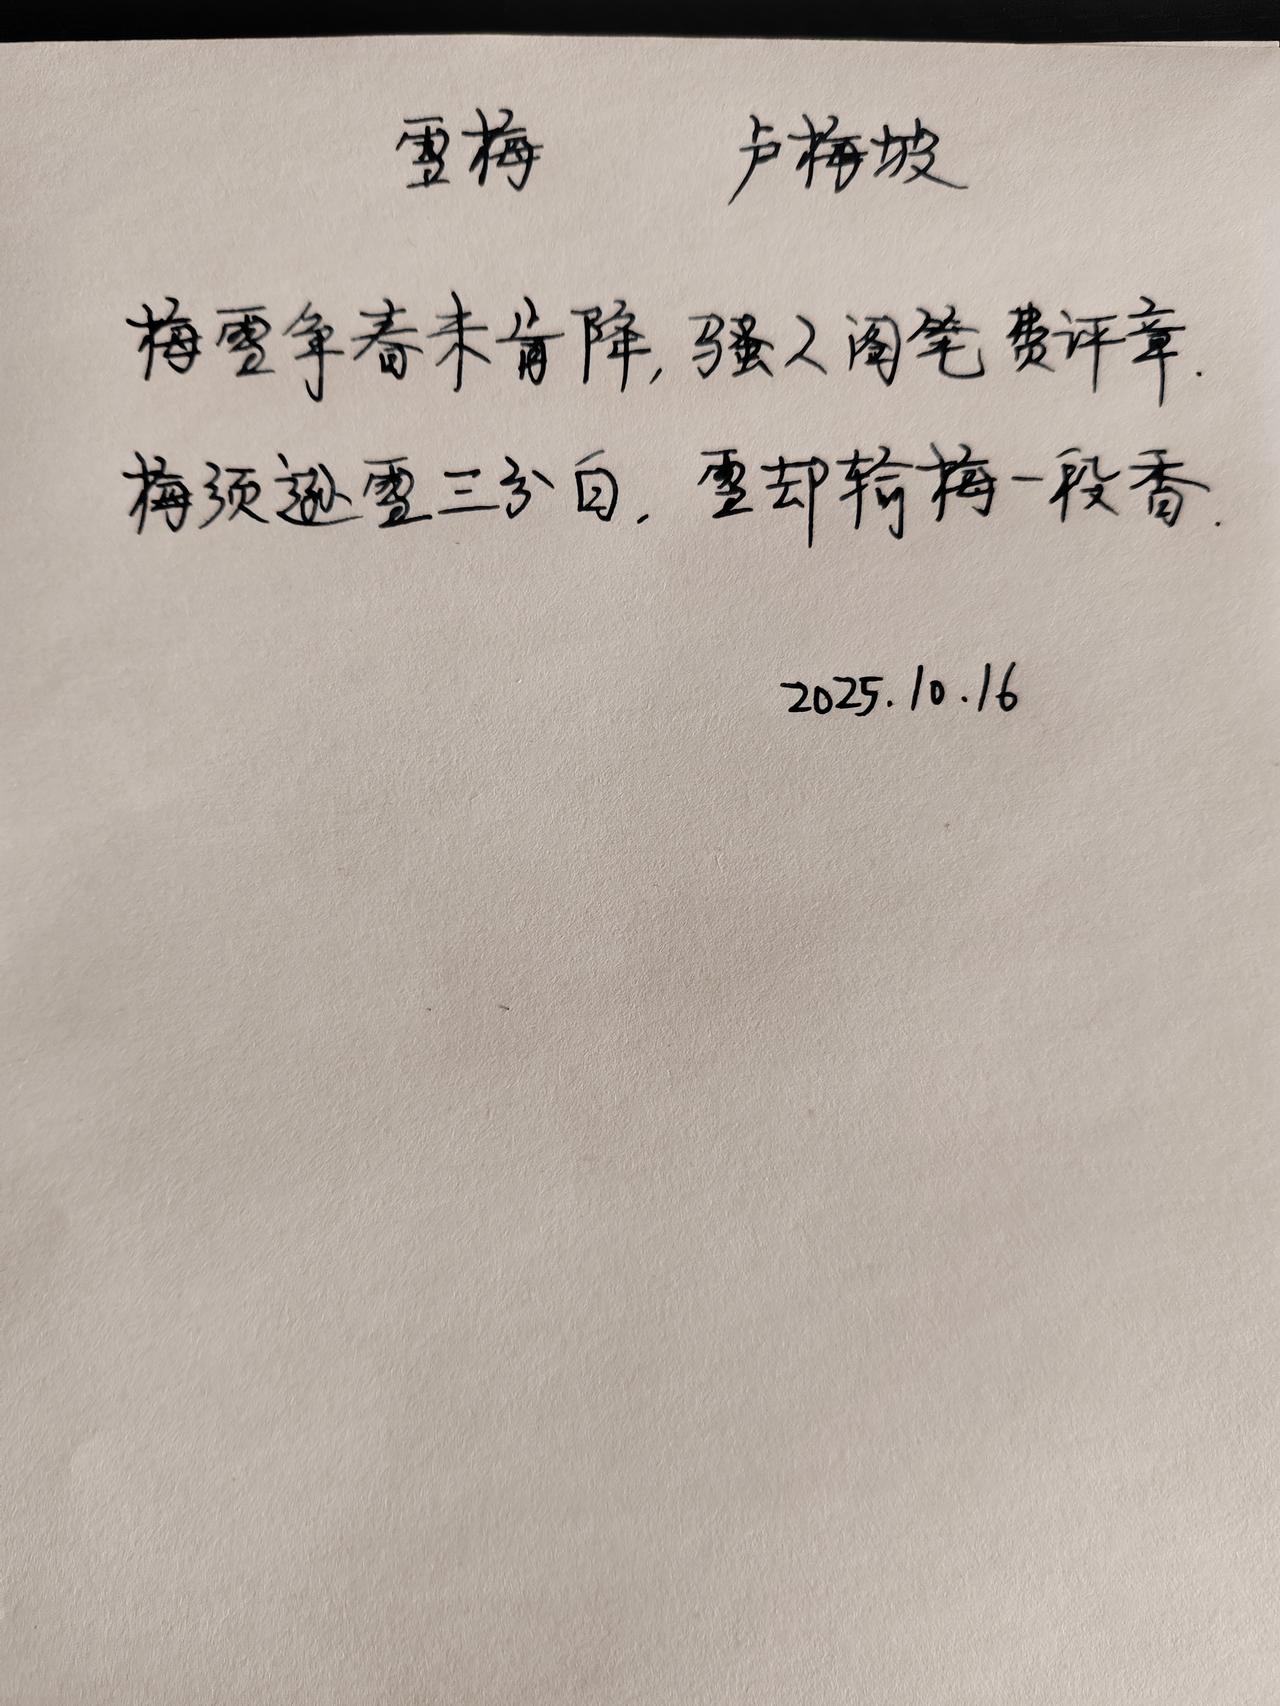 雪梅 卢梅坡
梅雪争春未肯降,骚人阁笔费评章.
梅须逊雪三分白.雪却输梅一段香.
2025.10.16